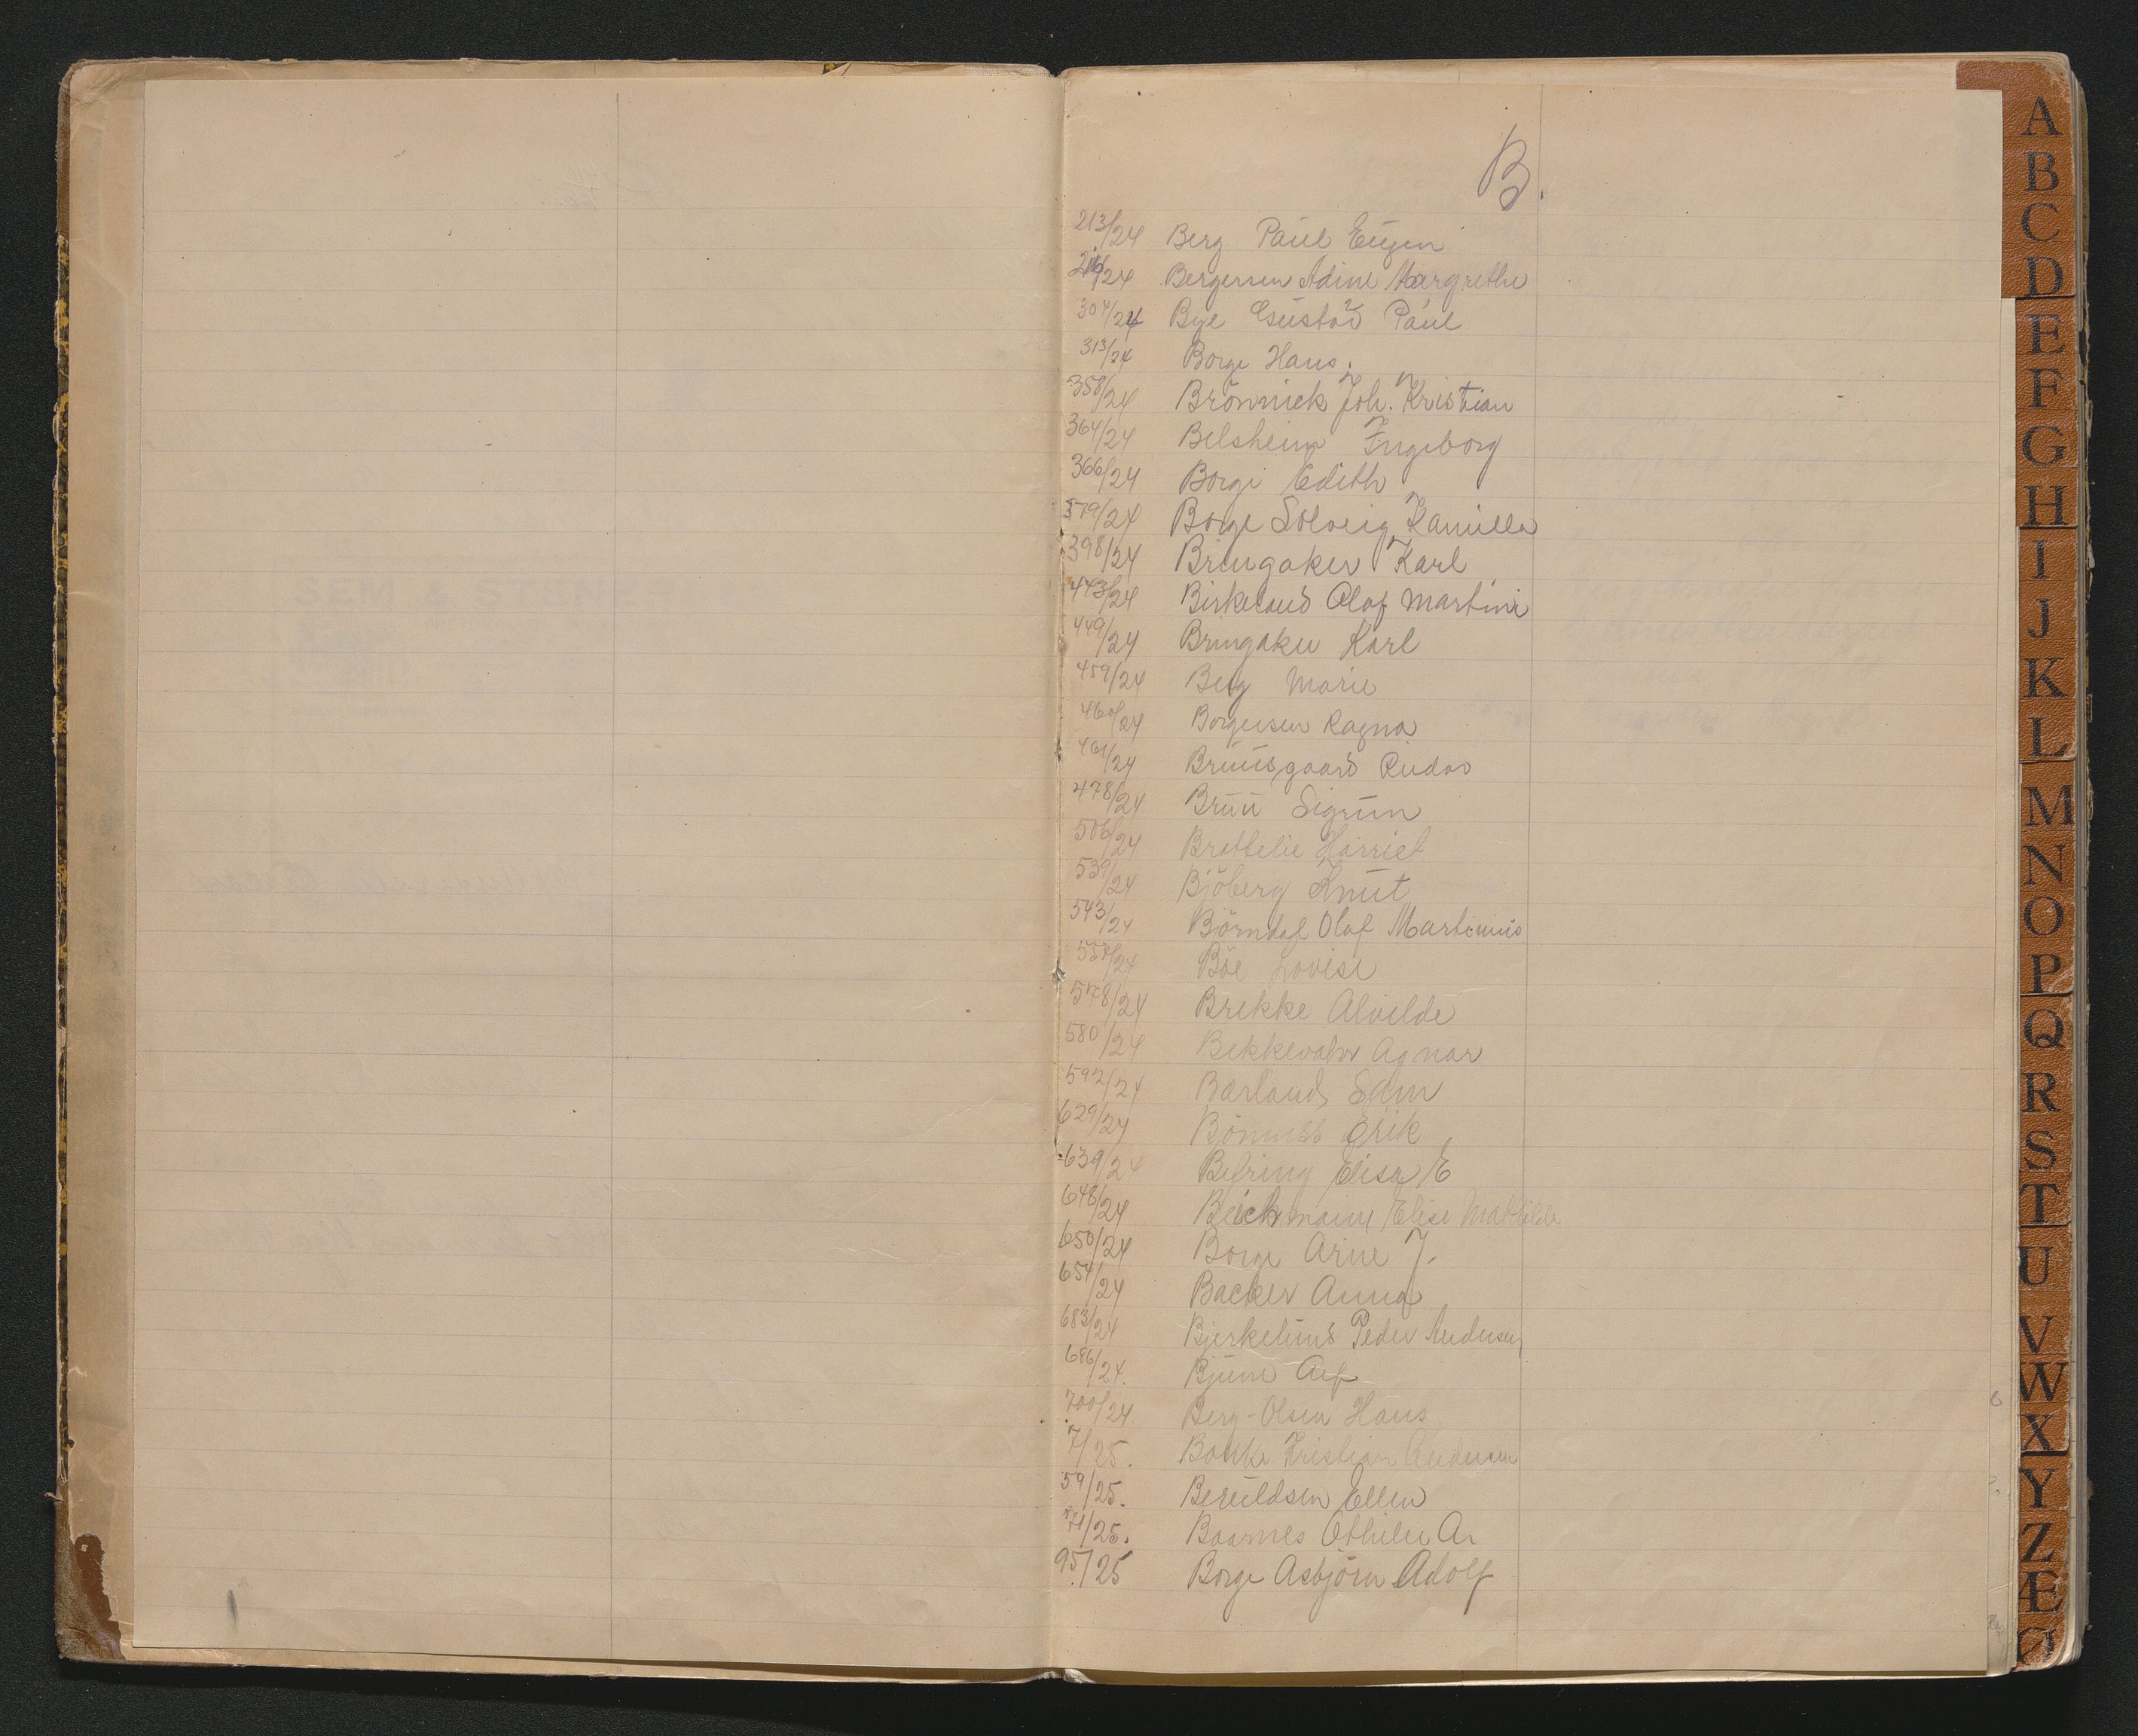 B.
213/24 Berg Paul Eugen
216/24 Bergersen Adine Margrethe
304/24 Bye Gustav Paul
313/24 Borge Hans.
358/24 Brönnick Joh. Kristian
364/24 Belsheim Ingeborg
366/24 Borge Edith
379/24 Borge Solveig Kamilla
398/24 Bringaker Karl
443/24 Birkeland Olaf Martin
449/24 Bringaker Karl
459/24 Berg Marie
460/24 Borgersen Ragna
461/24 Bruusgaard
478/24 Bruu Sigrun
506/24 Brattelie Harriet
539/24 Bjöberg Knut
543/24 Börndal Olaf Martinius
558/24 Böe Lovise
578/24 Brekke Alvilde
580/24 Bekkevahr Agnar
592/24 Barland Sam
629/24 Bönness Erik
639/24 Behring Elisa E
648/24 Beichmann Elise Mathilde
650/24 Borge Arne J.
654/24 Backer Anna
683/24 Bjerkelund Peder Andersen
686/24. Bjune Alf
700/24. Berg-Olsen Hans
7/25. Kristian Andersen
59/25. Beruldsen Ellen
71/25. Baarnes Othilie A.
95/25 Borge Asbjörn Adolf
A
B
C
D
E
F
G
H
I
J
K
L
M
N
O
P
Q
R
S
T
U
V
W
X
Y
Z
Æ
Ø